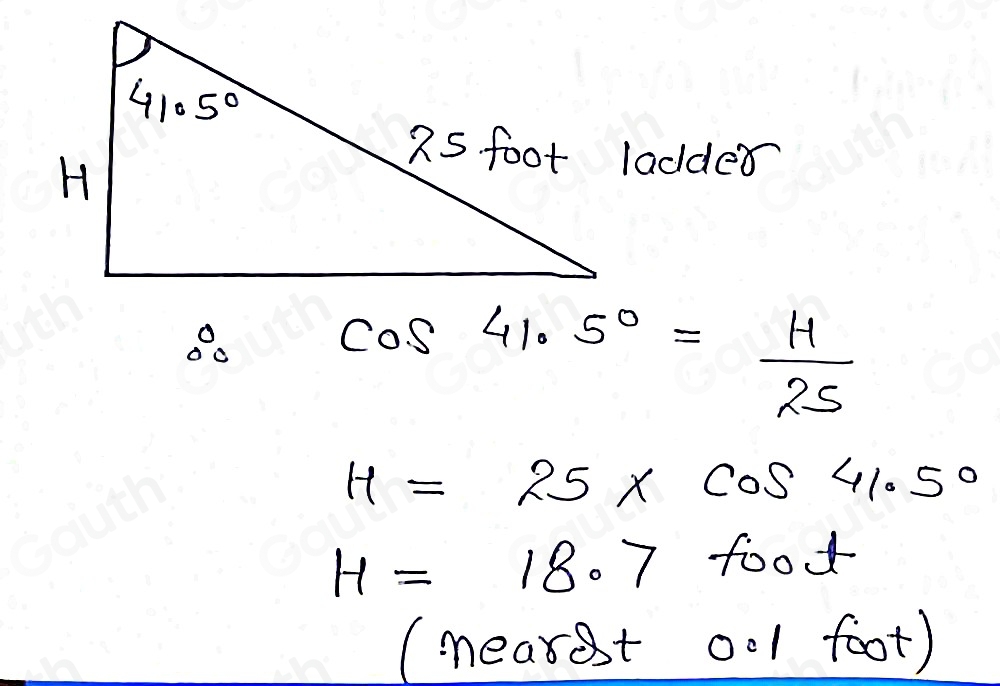 41.5°
H
25 foot ladder
∴ cos 41.5° = H
25
H = 25 × cos 41.5°
H = 18.7 foot
(nearest 0.1 foot)
Gauth